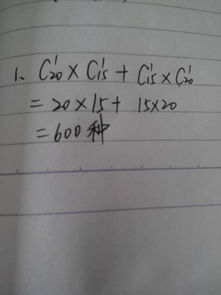 1、C₂₀¹ × C₁₅¹ + C₁₅¹ × C₂₀¹
= 20 × 15 + 15 × 20
= 600 种